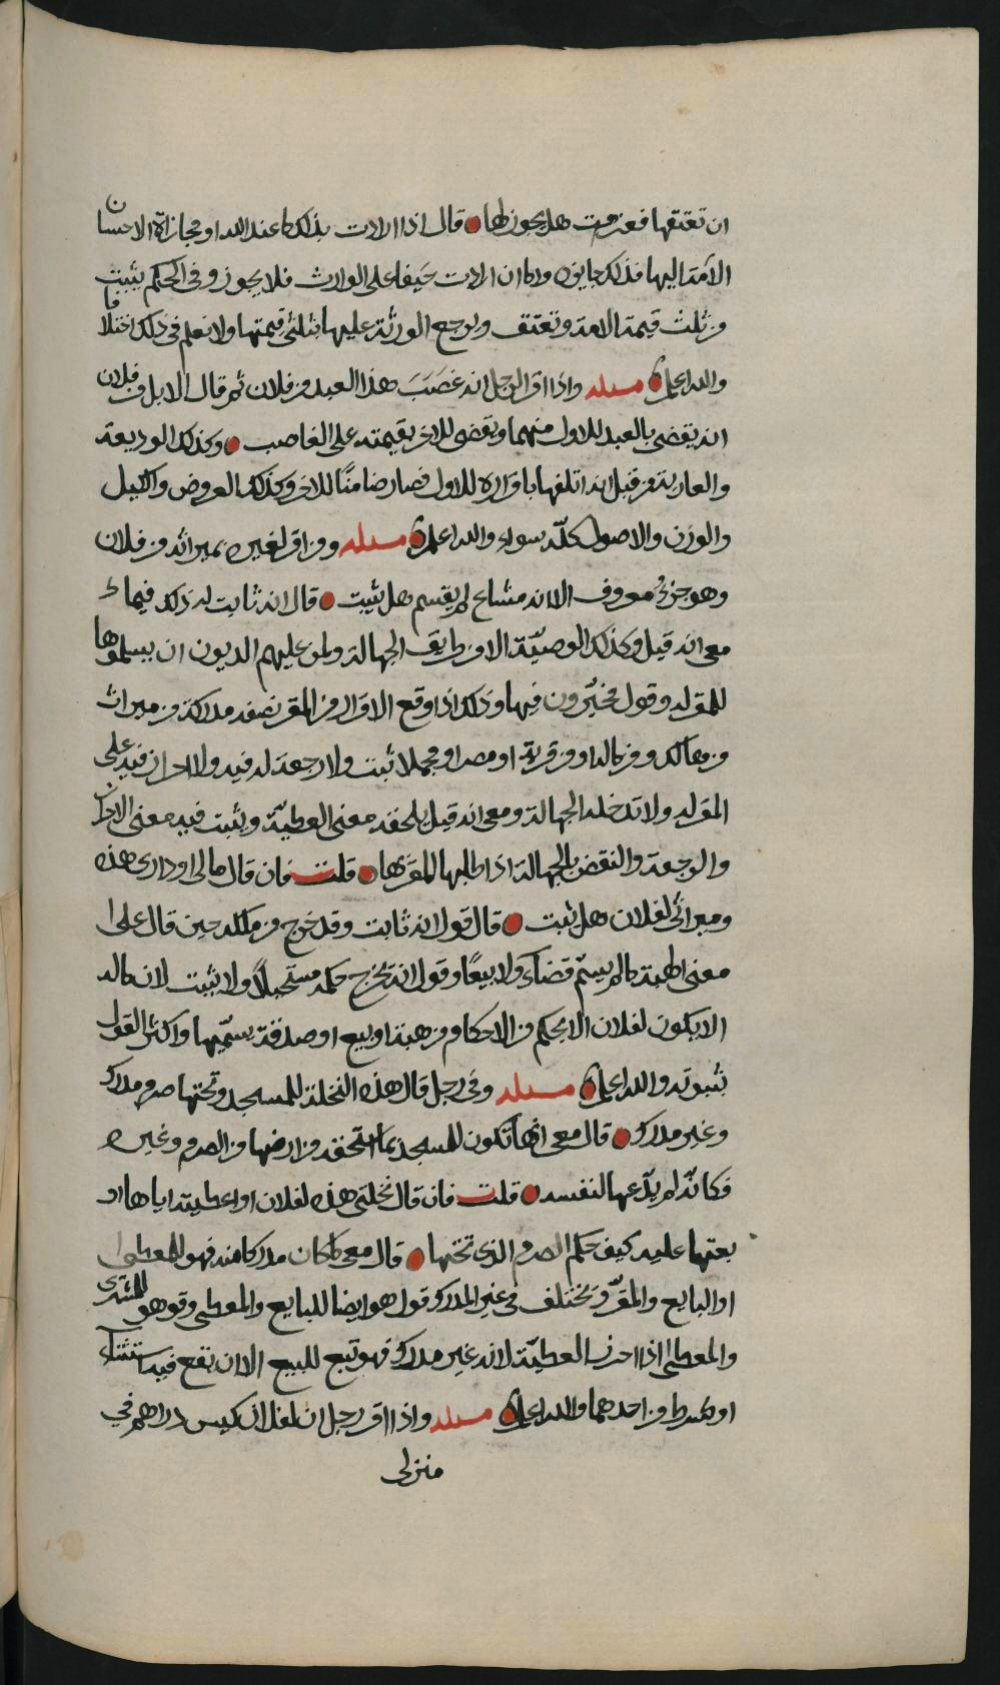 ان تعتقها فعزمت هل يجوز لها قال اذا ارادت بذلك ما عند الله او مجازاة الاحسان
الامة اليها فذلك جايز واما ان ارادت حيفا على الوارث فلا يجوز وفي الحكم يثبت
من ثلث قيمة الامة وتعتق ويرجع الورثة عليها بثلثي قيمتها ولا نعلم في ذلك اختلافا
والله اعلم مسئلة واذا اقر الرجل انه غصب هذا العبد من فلان ثم قال لا بل من فلان
انه يقضي بالعبد للاول منهما ويقضي للاخر بقيمته على الغاصب وكذلك الوديعة
والعارية من قبل انه اتلفها باقراره للاول فصار ضامنًا للاخر وكذلك العروض والكيل
والوزن والاصول كله سواء والله اعلم مسئلة ومن اقر لغيره بميراثه من فلان
وهو جزء معروف الا انه مشاع لم يقسم هل يثبت قال انه ثابت له ذلك فيما
معي انه قيل وكذلك الوصية الا من طريق الجهالة ولمن عليهم الديون ان يسلموها
للمقر له وقول مخيرون فيها وذلك اذا وقع الاقرار من المقر نصفه مدركة من ميراث
من هالك ومن ماله او من قرية او مصر او مجملا ثبت ولا رجعة له فيه ولا احراز فيه على
المقر له ولا تدخله الجهالة ومعي انه قيل يلحقه معنى العطية ويثبت فيه معنى الاحراز
والرجعة والنقض بالجهالة اذا طلبها المقر بها قلت فان قال مالي او داري هذه
وميراثي لفلان هل يثبت قال قول انه ثابت وقد خرج من ملكه حين قال على
معنى الهبة ما لم يسم قضاء ولا بيعًا وقول انه يخرج حكمه مستحيلاً ولا يثبت لان ماله
لا يكون لفلان الا بحكم من الاحكام من هبة او بيع او صدقة يسميها واكثر القول
ثبوته والله اعلم مسئلة وفي رجل قال هذه النخلة للمسجد وتحتها صرم مدرك
وغير مدرك قال معي انها تكون للمسجد بما استحقه من ارضها من الصرم وغيره
فكانه لم يدعها لنفسه قلت فان قال نخلتي هذه لفلان او اعطيته اياها او
بعتها عليه كيف حكم الصرم الذي تحتها قال معي ما كان مدركا منه فهو للمعطي
او البايع والمقر ويختلف في غير المدرك قول هو ايضا للبايع والمعطي وقول هو للمشتري
والمعطى اذا احرز العطية لانه غير مدرك فهو تبع للبيع الا ان يقع فيه استثناء
او شرط من احدهما والله اعلم مسئلة واذا اقر رجل ان لفلان كيس دراهم في
منزلي